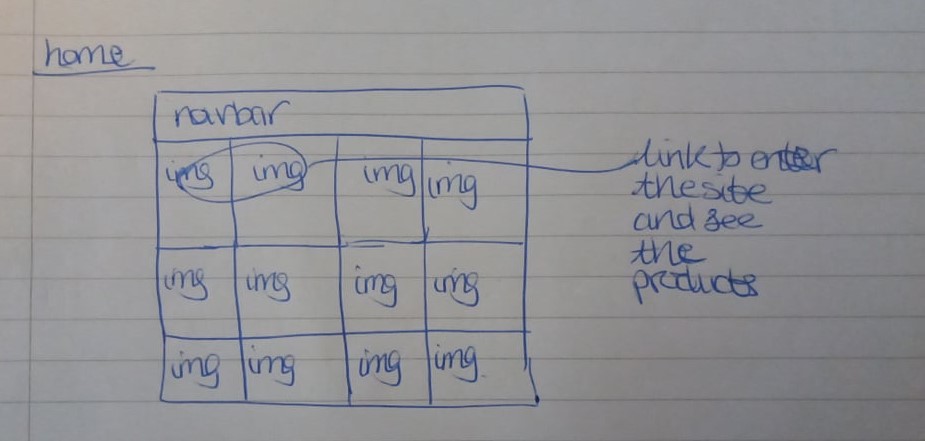 home
navbar
img img img img
img img img img
img img img img.
link to enter
the site
and see
the
products